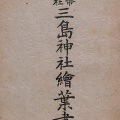 三島神社繪葉書